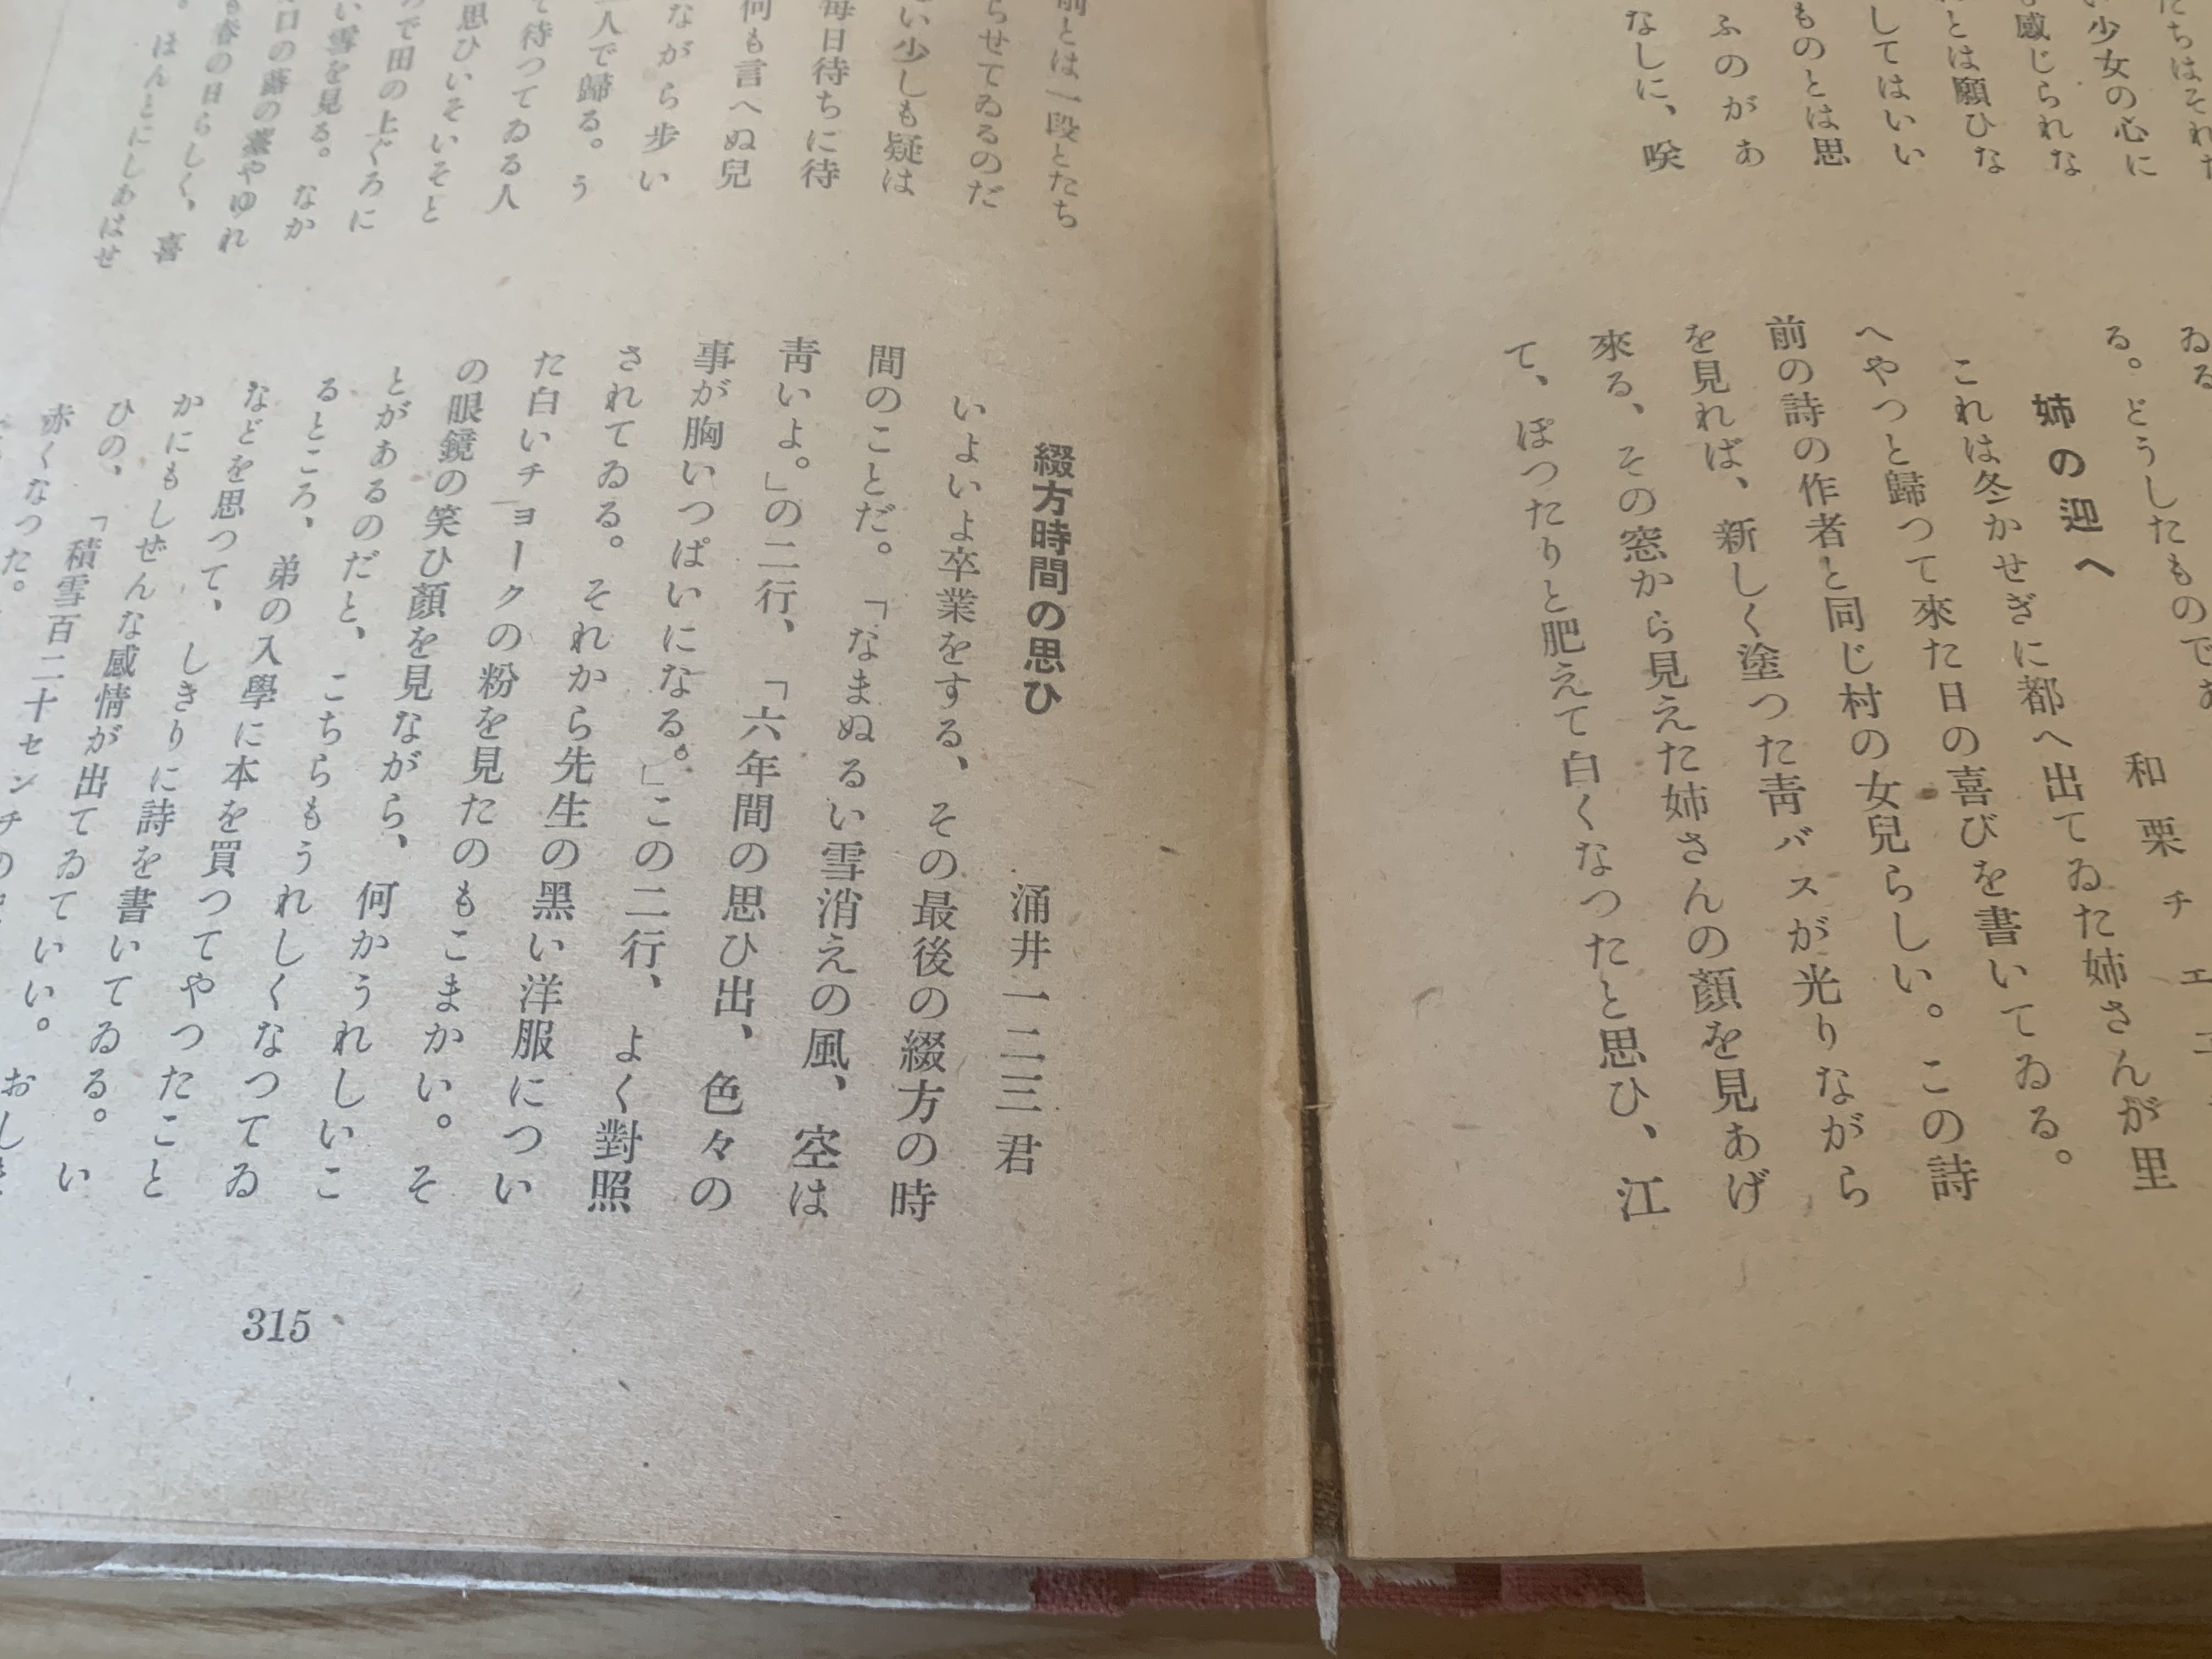 たちはそれ
少女の心に
感じられな
とは願ひな
してはいい
ものとは思
ふのがあ
なしに、咲
ゐる
る。どうしたものでゐ
姉の迎へ
和栗チエ
これは冬かせぎに都へ出てゐた姉さんが里
へやつと歸つて來た日の喜びを書いてゐる。
前の詩の作者と同じ村の女兒らしい。この詩
を見れば、新しく塗つた靑バスが光りながら
來る、その窓から見えた姉さんの顏を見あげ
て、ぽつたりと肥えて白くなつたと思ひ、江
前とは一段とたち
らせてゐるのだ
い少しも疑は
毎日待ちに待
何も言へぬ兒
ながら歩い
人で歸る。う
て待つてゐる人
思ひいそいそと
で田の上ぐろに
い雪を見る。なか
口の蕗の葉やゆれ
春の日らしく、喜
。ほんとにしあはせ
綴方時間の思ひ
涌井一二三君
いよいよ卒業をする、その最後の綴方の時
間のことだ。「なまぬるい雪消えの風、空は
靑いよ。」の二行、「六年間の思ひ出、色々の
事が胸いつぱいになる。」この二行、よく對照
されてゐる。それから先生の黑い洋服につい
た白いチョークの粉を見たのもこまかい。そ
の眼鏡の笑ひ顏を見ながら、何かうれしいこ
とがあるのだと、こちらもうれしくなつてゐ
るところ、弟の入學に本を買つてやつたこと
などを思つて、しきりに詩を書いてゐる。い
かにもしぜんな感情が出てゐていい。おし
ひの、「積雪百二十センチの
赤くなつた。
315